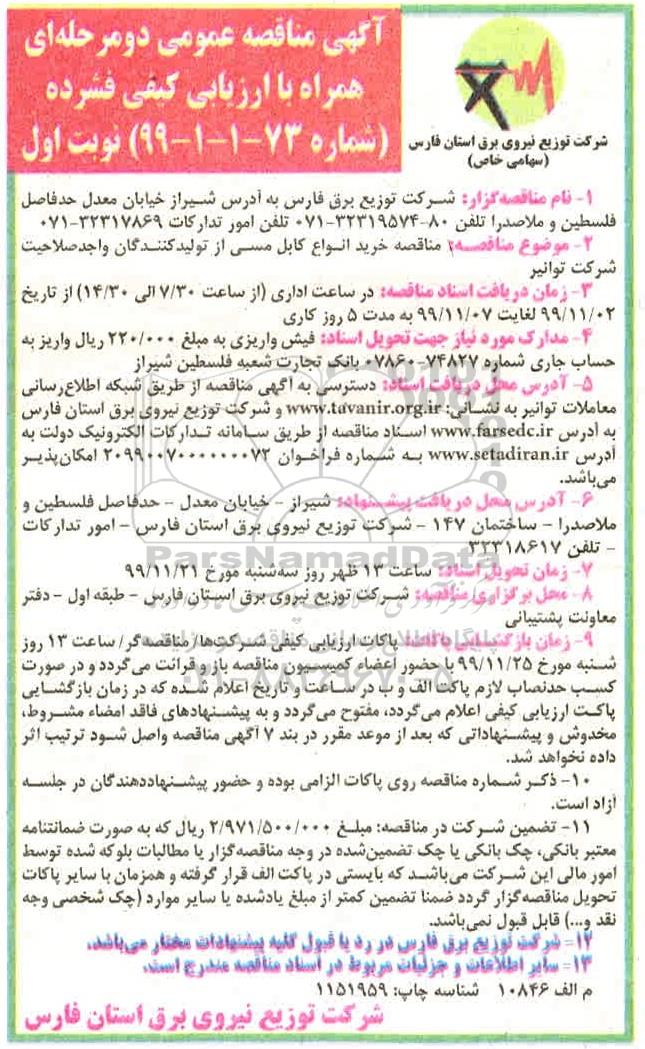 آگهی مناقصه عمومی دومرحله‌ای
همراه با ارزیابی کیفی فشرده
(شماره ۷۳-۱-۱-۹۹) نوبت اول
شرکت توزیع نیروی برق استان فارس
(سهامی خاص)
۱- نام مناقصه‌گزار: شرکت توزیع برق فارس به آدرس شیراز خیابان معدل حدفاصل
فلسطین و ملاصدرا تلفن ۸۰-۳۲۳۱۹۵۷۴-۰۷۱ تلفن امور تدارکات ۳۲۳۱۷۸۶۹-۰۷۱
۲- موضوع مناقصه: مناقصه خرید انواع کابل مسی از تولیدکنندگان واجدصلاحیت
شرکت توانیر
۳- زمان دریافت اسناد مناقصه: در ساعت اداری (از ساعت ۷/۳۰ الی ۱۴/۳۰) از تاریخ
۹۹/۱۱/۰۲ لغایت ۹۹/۱۱/۰۷ به مدت ۵ روز کاری
۴- مدارک مورد نیاز جهت تحویل اسناد: فیش واریزی به مبلغ ۲۲۰/۰۰۰ ریال واریز به
حساب جاری شماره ۷۴۸۲۷-۰۷۸۶۰ بانک تجارت شعبه فلسطین شیراز
۵- آدرس محل دریافت اسناد: دسترسی به آگهی مناقصه از طریق شبکه اطلاع‌رسانی
معاملات توانیر به نشانی: www.tavanir.org.ir و شرکت توزیع نیروی برق استان فارس
به آدرس www.farsedc.ir اسناد مناقصه از طریق سامانه تدارکات الکترونیک دولت به
آدرس www.setadiran.ir به شماره فراخوان ۲۰۹۹۰۰۷۰۰۰۰۰۰۰۷۲ امکان‌پذیر
می‌باشد.
۶- آدرس محل دریافت پیشنهاد: شیراز - خیابان معدل - حدفاصل فلسطین و
ملاصدرا - ساختمان ۱۴۷ - شرکت توزیع نیروی برق استان فارس - امور تدارکات
- تلفن ۳۲۳۱۸۶۱۷
ParsNamadData
۷- زمان تحویل اسناد: ساعت ۱۳ ظهر روز سه‌شنبه مورخ ۹۹/۱۱/۲۱
۸- محل برگزاری مناقصه: شرکت توزیع نیروی برق استان فارس - طبقه اول - دفتر
معاونت پشتیبانی
۹- زمان بازگشایی پاکات: پاکات ارزیابی کیفی شرکت‌ها/ مناقصه‌گر/ ساعت ۱۳ روز
شنبه مورخ ۹۹/۱۱/۲۵ با حضور اعضاء کمیسیون مناقصه باز و قرائت می‌گردد و در صورت
۰۲۱-۸۸۳۴۹۶۷۰-۵
کسب حدنصاب لازم پاکت الف و ب در ساعت و تاریخ اعلام شده که در زمان بازگشایی
پاکت ارزیابی کیفی اعلام می‌گردد، مفتوح می‌گردد و به پیشنهادهای فاقد امضاء مشروط،
مخدوش و پیشنهاداتی که بعد از موعد مقرر در بند ۷ آگهی مناقصه واصل شود ترتیب اثر
داده نخواهد شد.
۱۰- ذکر شماره مناقصه روی پاکات الزامی بوده و حضور پیشنهاددهندگان در جلسه
آزاد است.
۱۱- تضمین شرکت در مناقصه: مبلغ ۲/۹۷۱/۵۰۰/۰۰۰ ریال که به صورت ضمانتنامه
معتبر بانکی، چک بانکی یا چک تضمین‌شده در وجه مناقصه‌گزار یا مطالبات بلوکه شده توسط
امور مالی این شرکت می‌باشد که بایستی در پاکت الف قرار گرفته و همزمان با سایر پاکات
تحویل مناقصه‌گزار گردد ضمنا تضمین کمتر از مبلغ یادشده یا سایر موارد (چک شخصی وجه
نقد و...) قابل قبول نمی‌باشد.
۱۲- شرکت توزیع برق فارس در رد یا قبول کلیه پیشنهادات مختار می‌باشد.
۱۳- سایر اطلاعات و جزئیات مربوط در اسناد مناقصه مندرج است.
م الف ۱۰۸۴۶ شناسه چاپ: ۱۱۵۱۹۵۹
شرکت توزیع نیروی برق استان فارس